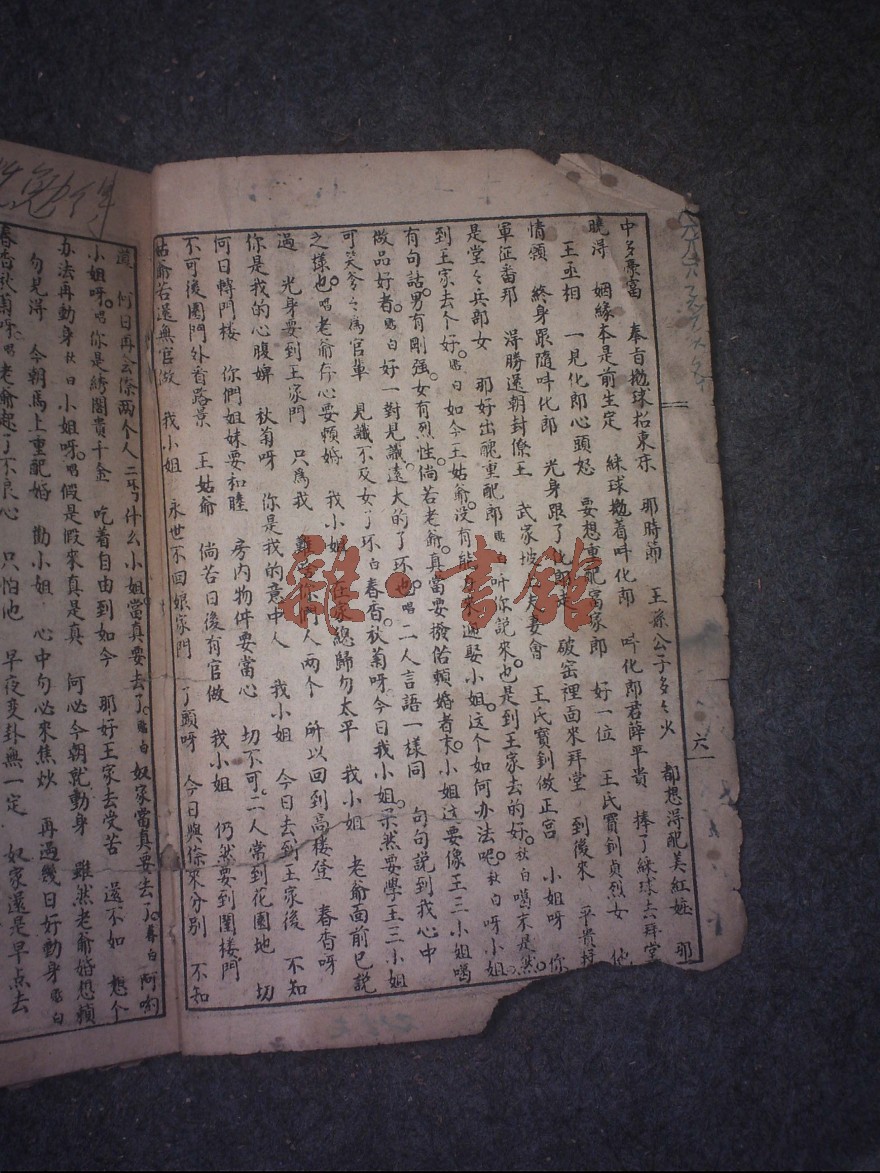 中多豪富 奉旨抛球招東床 那時節 王孫公子多々少 都想得配美紅妝 那
曉得 姻緣本是前生定 綵球抛着叫化郎 叫化郎君薛平貴 捧了綵球去拜堂
王丞相 一見化郎心頭怒 要想重配富家郎 好一位 王氏寶釧貞烈女 他
情領 終身跟隨叫化郎 光身跟了化郎走 破窑裡面來拜堂 到後來 平貴
軍征番邦 得勝還朝封僚王 武家坡 夫妻會 王氏寶釧做正宮 小姐呀 你
是堂々兵部女 那好出醜重配郎 白 叫你説來也是到王家去的好。秋白 噶末是然。
到王家去个好。白 如今王姑爺没有 過娶小姐。这个如何办法呢。秋白 呀小姐
有句話。男有剛强。女有烈性。倘若老爺。真當要撥俉頼婚者末。小姐这要像王三小姐噶
做品好者。白 好一對見識遠大的了环也。唱 二人言語一樣同 句句説到我心中
可笑爹々為官輩 見識不及女了环 白 春香。秋菊呀。今日我小姐。杲然要學王三小姐
之様也。唱 老爺存心要頼婚 我小姐 在家總歸勿太平 我小姐 老爺面前已説
過 光身要到王家門 只為我 你們人两个 所以回到高楼登 春香呀
你是我的心腹婢 秋菊呀 你是我的意中人 我小姐 今日去到王家後 不知
何日轉門楼 你們姐妹要和睦 房内物件要當心 切不可。二人常到花園地 切
不可後園門外看路景 王姑爺 倘若日後有官做 我小姐 仍然要到閨楼門
姑爺若還無官做 我小姐 永世不回娘家門 了頭呀 今日與你來分別 不知
道 何日再会你两个人 二丐 什么小姐當真要去了。白 奴家當真要去了。春白 阿喲
小姐呀。唱 你是綉閣貴千金 吃着自由到如今 那好王家去受苦 還不如 想个
办法再動身 秋白 小姐呀。唱 假是假來真是真 何必今朝就動身 雖然老爺婚思頼
勿見得 今朝馬上重配婚 勸小姐 心中勿必來焦炒 再過幾日好動身 白
春香秋菊呀。唱 老爺起了不良心 只怕他 早夜变卦無一定 奴家還是早点去
六